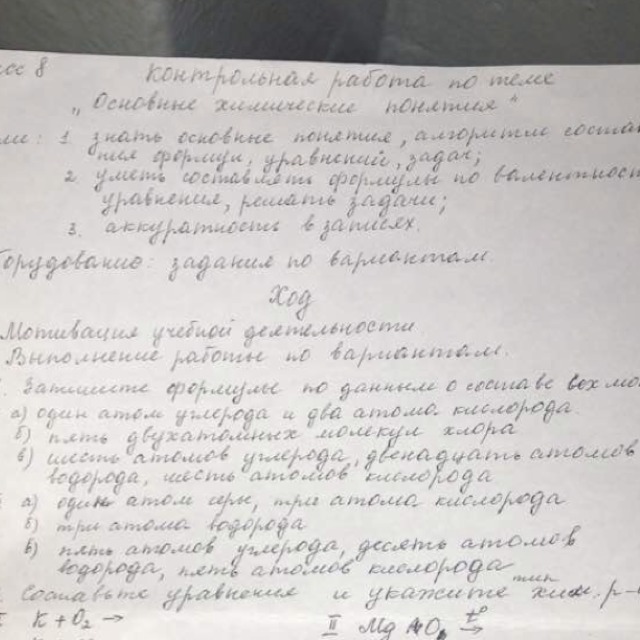 Контрольная работа по теме
„Основные химические понятия"
1. знать основные понятия, алгоритм состав
ния формул, уравнений, задач;
2. уметь составлять формулы по валентност
уравнения, решать задачи;
3. аккуратность в записях.
борудование: задания по вариантам.
Ход
Мотивация учебной деятельности.
Выполнение работы по вариантам.
Запишите формулы по данным о составе
а) один атом углерода и два атома кислорода.
б) пять двухатомных молекул хлора
в) шесть атомов углерода, двенадцать атомов
водорода, шесть атомов кислорода
а) один атом серы, три атома кислорода
б) три атома водорода
в) пять атомов углерода, десять атомов
водорода, пять атомов кислорода
Составьте уравнение и укажите тип хим. р-
K + O₂ → II Mg + O₂ t° →